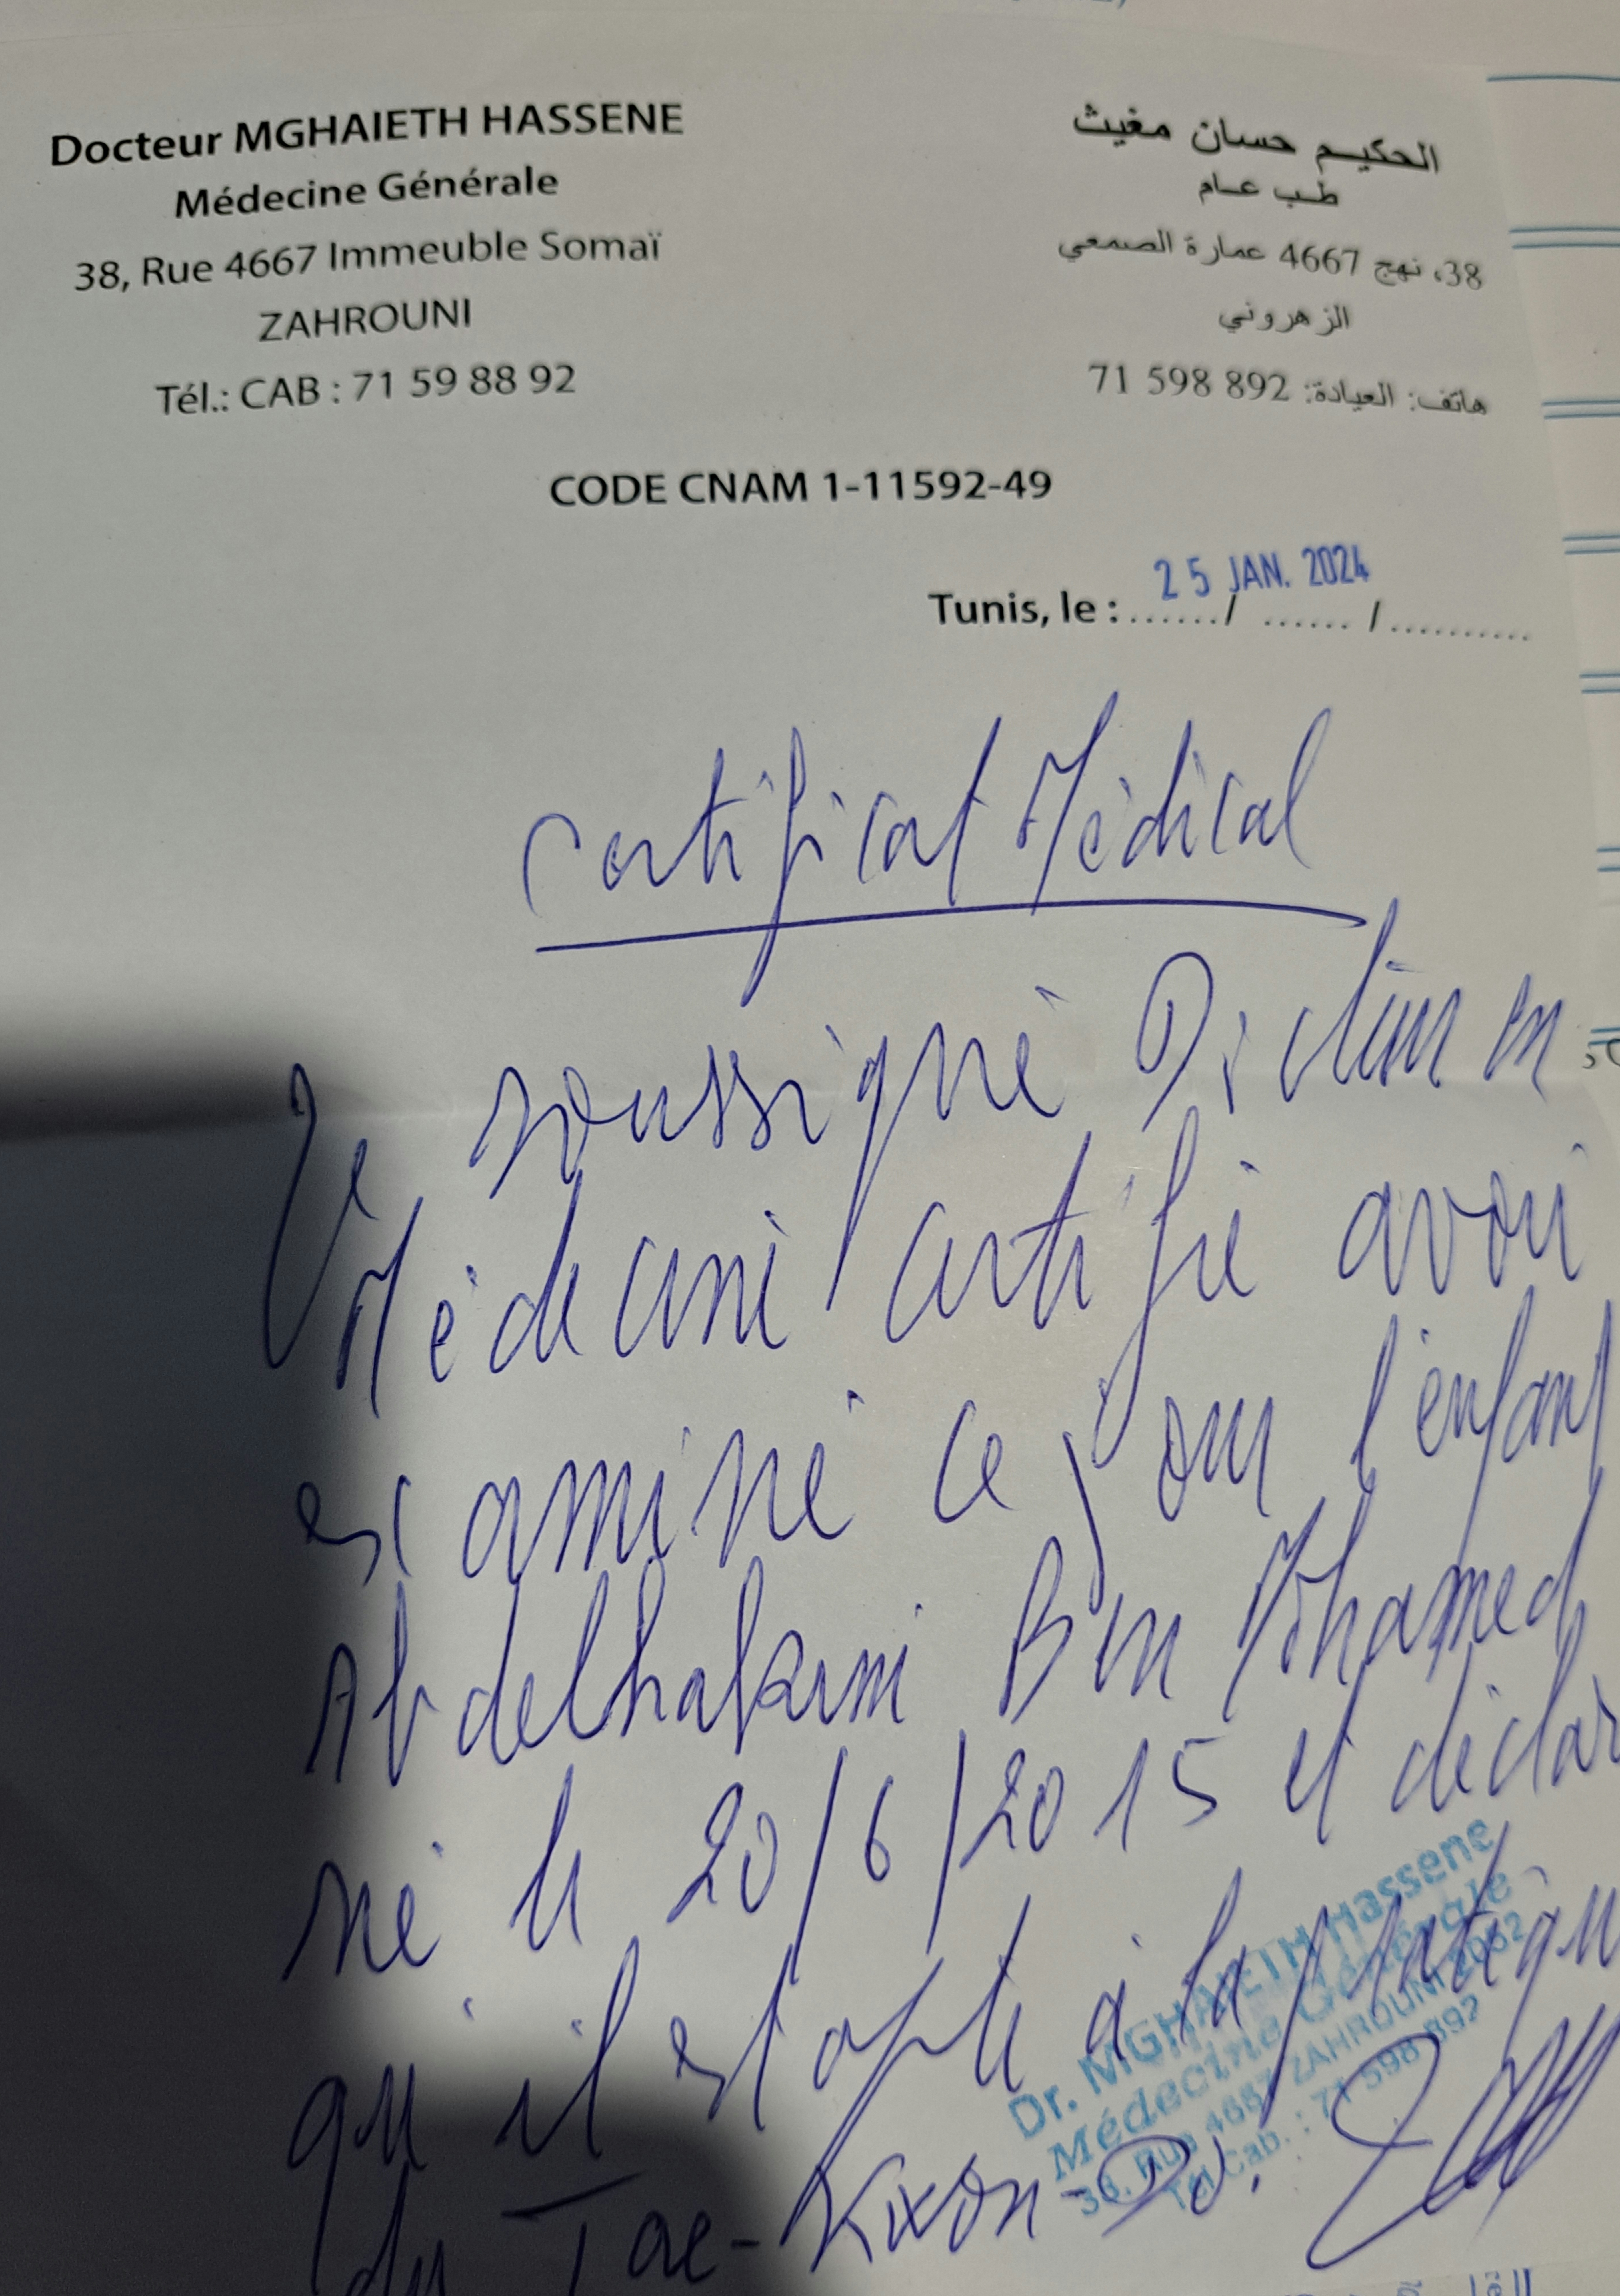 Docteur MGHAIETH HASSENE
Médecine Générale
38, Rue 4667 Immeuble Somaï
ZAHROUNI
Tél.: CAB : 71 59 88 92
الحكيم حسان مغيث
طب عام
38، نهج 4667 عمارة الصمعي
الزهروني
هاتف: العيادة: 71 598 892
CODE CNAM 1-11592-49
Tunis, le : ....../ ...... / ..........
25 JAN. 2024
Certificat Médical
Je soussigné Docteur en
Médecine certifie avoir
examiné ce jour l'enfant
Abdelhakim Ben Mohamed
né le 20/6/2015 et déclare
qu'il est apte à la pratique
du Tae-Kwon-Do.
Dr. MGHAIETH Hassene
Médecine Générale
38, Rue 4667 ZAHROUNI 2052
Tél Cab. : 71 598 892